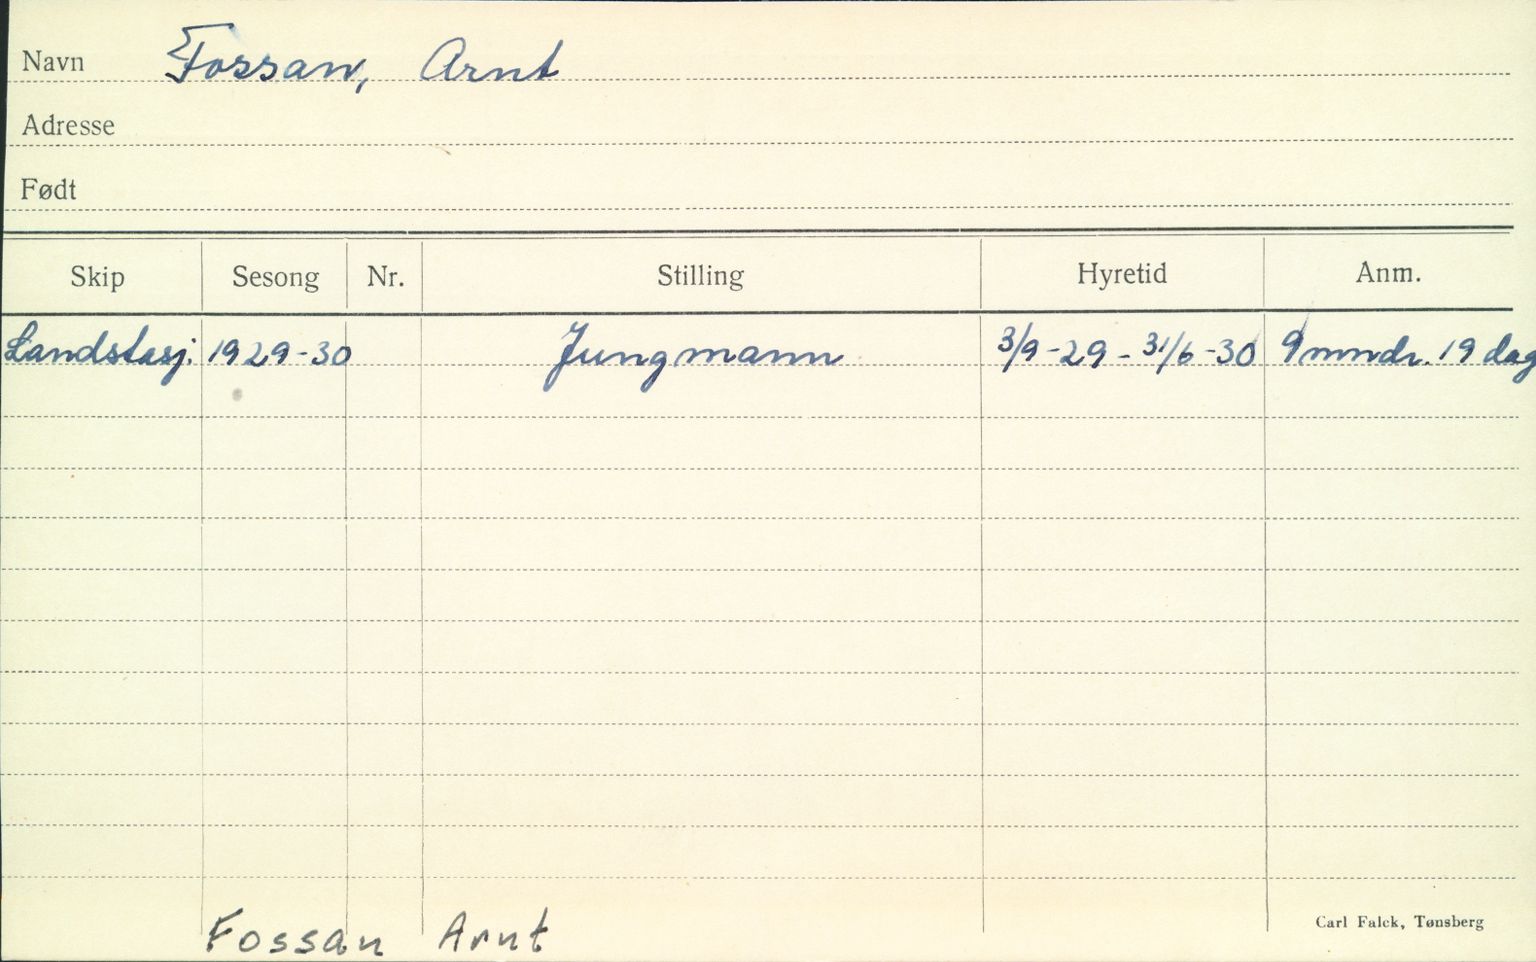 Navn Fossan, Arnt
Adresse
Født
Skip Sesong Nr. Stilling Hyretid Anm.
Landstasj. 1929-30 Jungmann 3/9-29 - 31/6-30 9 mndr. 19 dag
Carl Falck, Tønsberg
Fossan Arnt